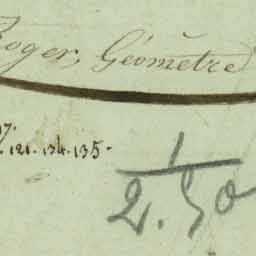 Roger, Géomètre
7.
121. 134. 135.
1
2.50